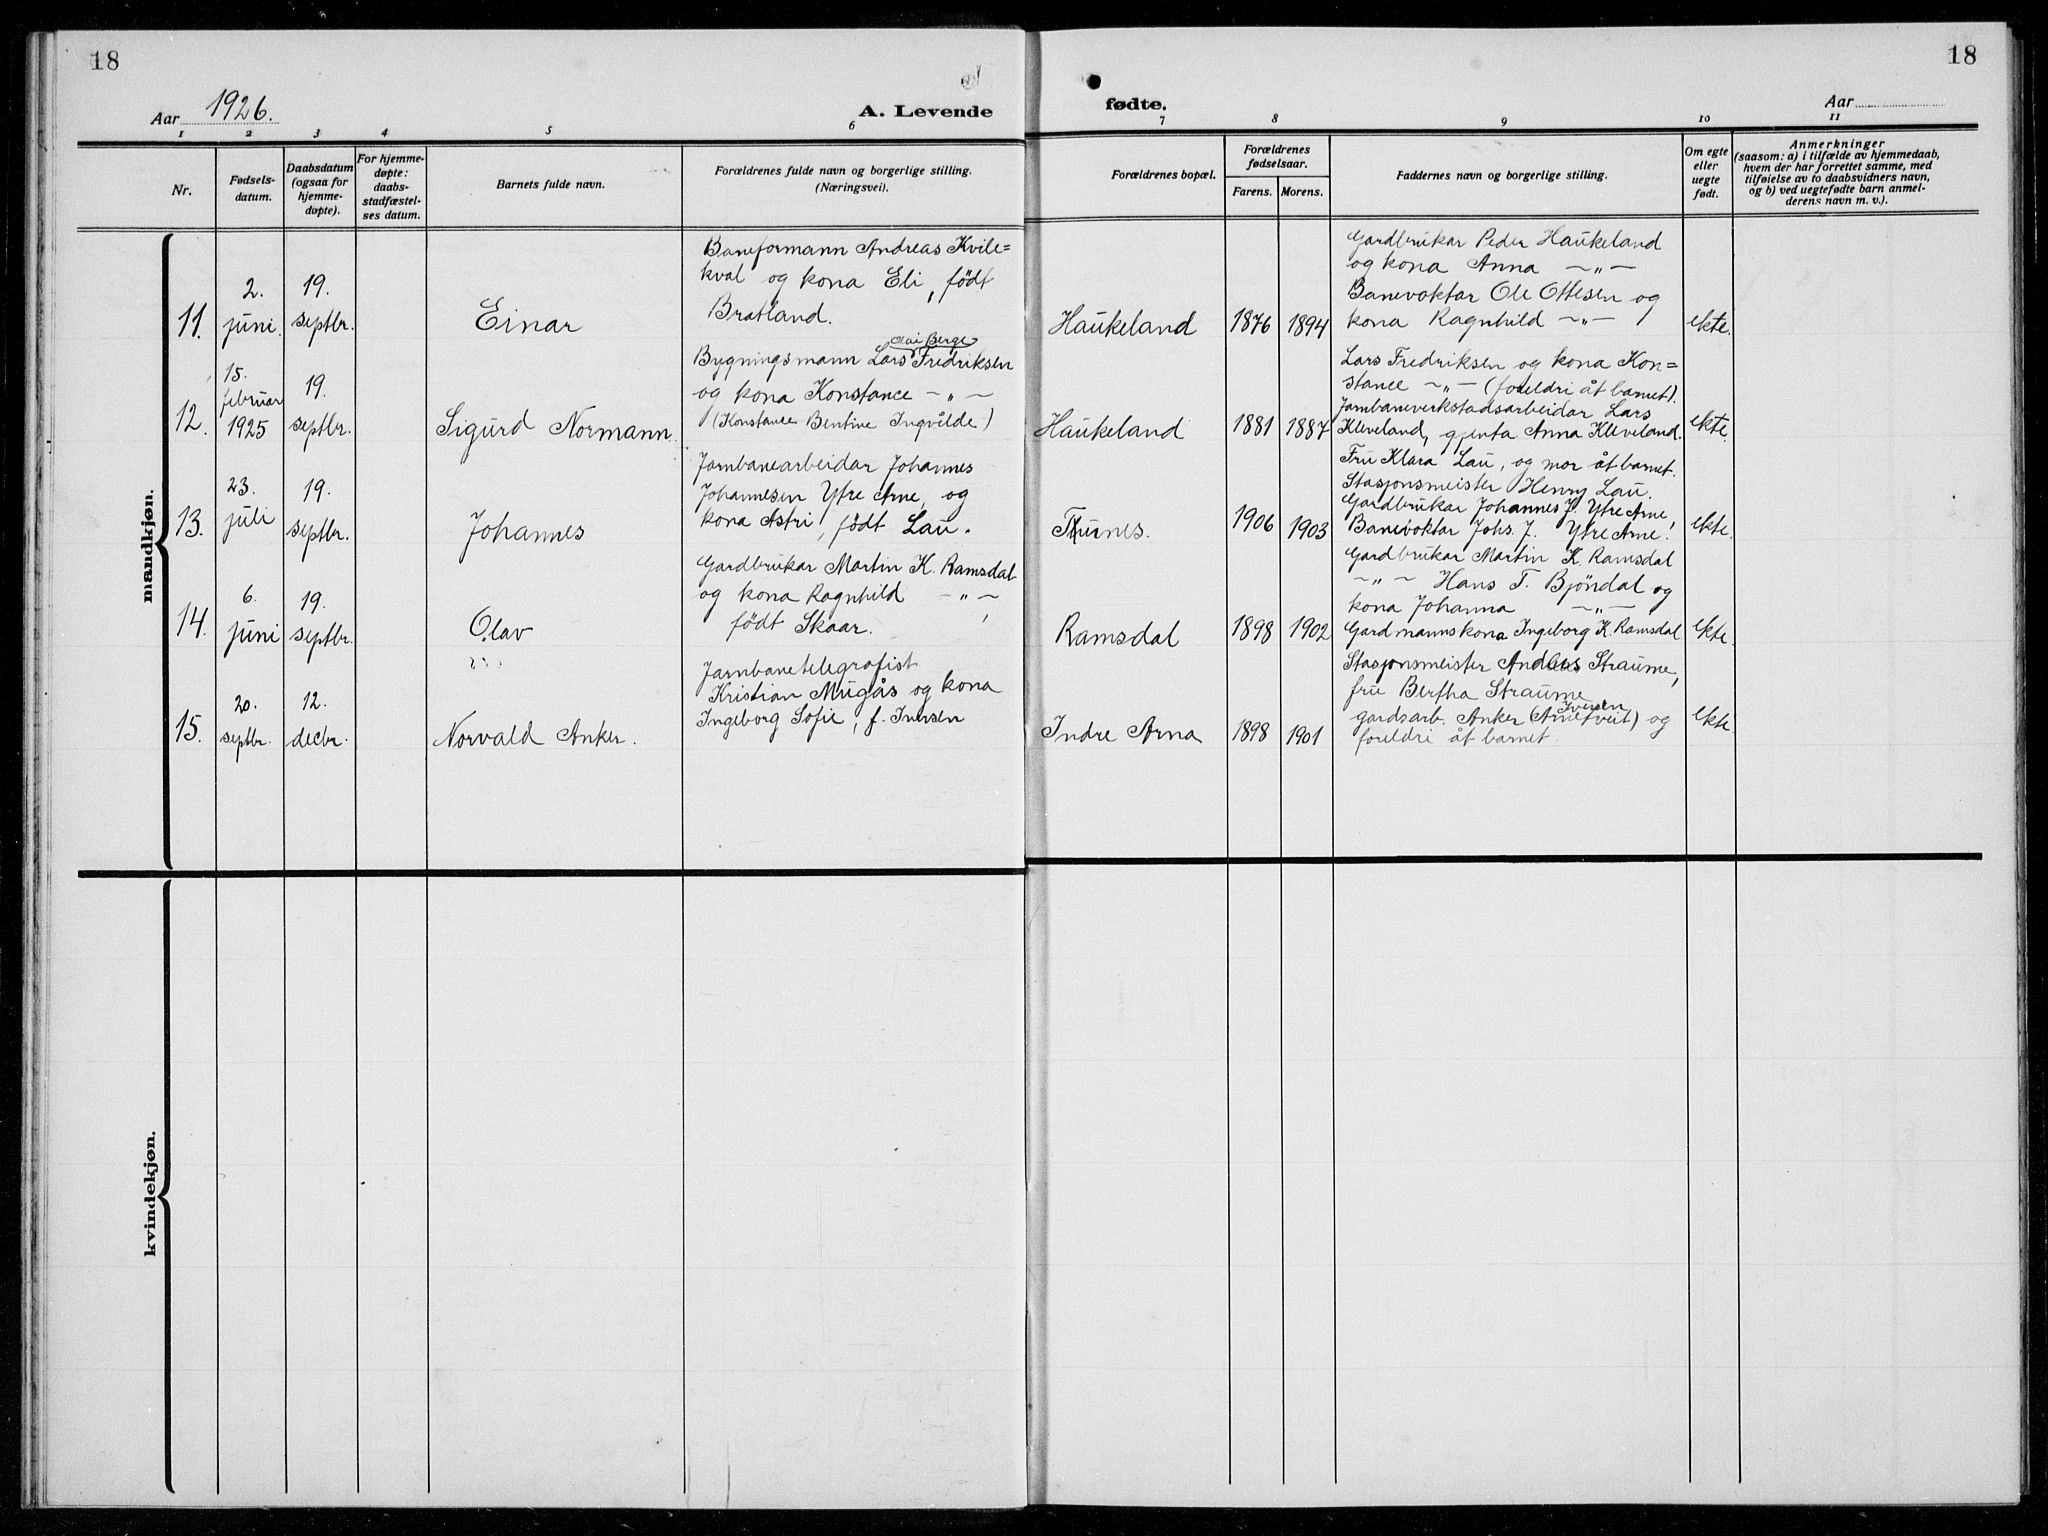 18
18
Aar 1926.
A. Levende
fødte.
Aar
1 2 3 4 5 6 7 8 9 10 11
Nr.
Fødsels-
datum.
Daabsdatum
(ogsaa for
hjemme-
døpte).
For hjemme-
døpte:
daabs-
stadfæstel-
ses datum.
Barnets fulde navn.
Forældrenes fulde navn og borgerlige stilling.
(Næringsvei).
Forældrenes bopæl.
Forældrenes
fødselsaar.
Farens. Morens.
Faddernes navn og borgerlige stilling.
Om egte
eller
uegte
født.
Anmerkninger
(saasom: a) i tilfælde av hjemmedaab,
hvem der har forrettet samme, med
tilføielse av to daabsvidners navn,
og b) ved uegtefødte barn anmel-
derens navn m. v.).
mandkjøn.
11.
2.
juni
19.
septbr.
Einar
Baneformann Andreas Kvile=
kval og kona Eli, født
Bratland.
Haukeland
1876
1894
Gardbrukar Peder Haukeland
og kona Anna —„—
Banevoktar Ole Ottesen og
kona Ragnhild —„—
ekte.
12.
15.
februar
1925
19.
septbr.
Sigurd Normann.
Berge
Bygningsmann Lars Fredriksen
og kona Konstance —„—
(Konstance Bentine Ingvilde)
Haukeland
1881
1887
Lars Fredriksen og kona Kon=
stance —„— (foreldri åt barnet).
Jarnbaneverkstadsarbeidar Lars
Kleveland, gjenta Anna Kleveland.
ekte.
13.
23.
juli
19.
septbr.
Johannes
Jarnbanearbeidar Johannes
Johannesen Ytre Arne, og
kona Astri, født Lau.
Tunes.
1906
1903
Fru Klara Lau, og mor åt barnet.
Stasjonsmeister Henry Lau.
Gardbrukar Johannes J. Ytre Arne,
Banevoktar Johs. J. Ytre Arne.
ekte.
14.
6.
juni
19.
septbr.
Olav
Gardbrukar Martin K. Ramsdal
og kona Ragnhild —„—,
født Skaar.
Ramsdal
1898
1902
Gardbrukar Martin K. Ramsdal
—„— Hans T. Bjöndal og
kona Johanna —„—
Gardmannskona Ingeborg K. Ramsdal
ekte.
15.
20.
septbr.
12.
decbr.
Norvald Anker.
Jarnbanetelegrafist
Kristian Mugås og kona
Ingeborg Sofie, f. Iversen
Indre Arna
1898
1901
Stasjonsmeister Anders Straume,
fru Bertha Straume
Iversen
gardsarb. Anker (Arnetveit) og
foreldri åt barnet.
ekte.
kvindekjøn.